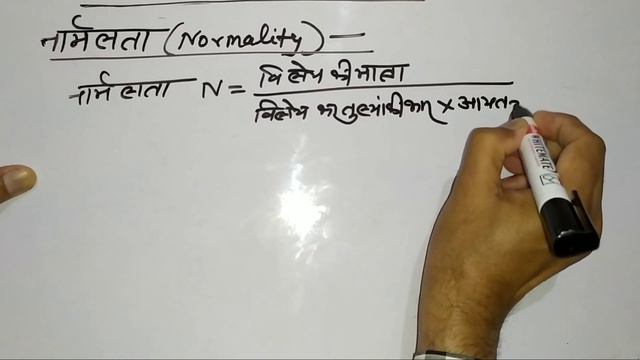 नार्मलता (Normality) —
नार्मलता N = विलेय की मात्रा
विलेय का तुल्यांकी भार × आयतन
WHITEMATE